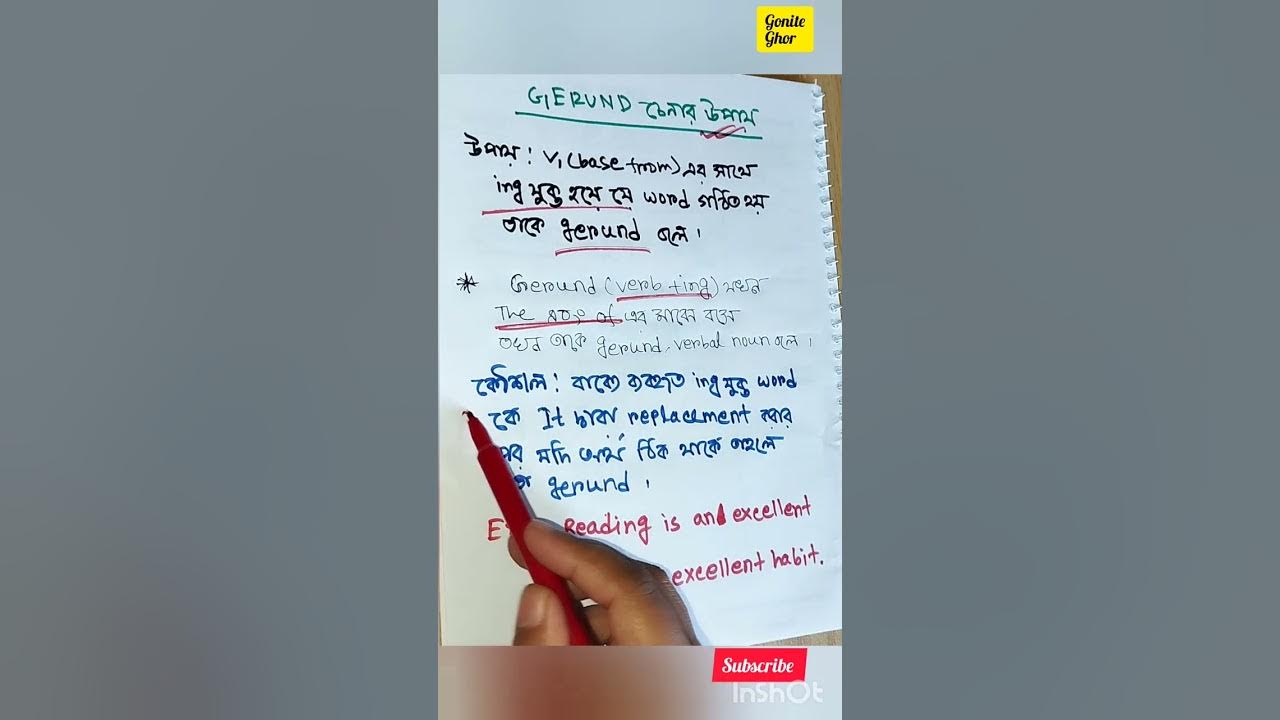 Gonite
Ghor
GERUND চেনার উপায়
উপায় : V₁ (base from) এর সাথে
ing যুক্ত হয়ে যে word গঠিত হয়
তাকে gerund বলে।
* Gerund (verb + ing) যখন
The এর মাঝে বসে
তখন তাকে gerund, verbal noun বলে।
কৌশল : বাক্যে ব্যবহৃত ing যুক্ত word
কে It দ্বারা replacement করার
পর যদি অর্থ ঠিক থাকে তাহলে
gerund ।
Reading is an excellent
excellent habit.
Subscribe
InShOt